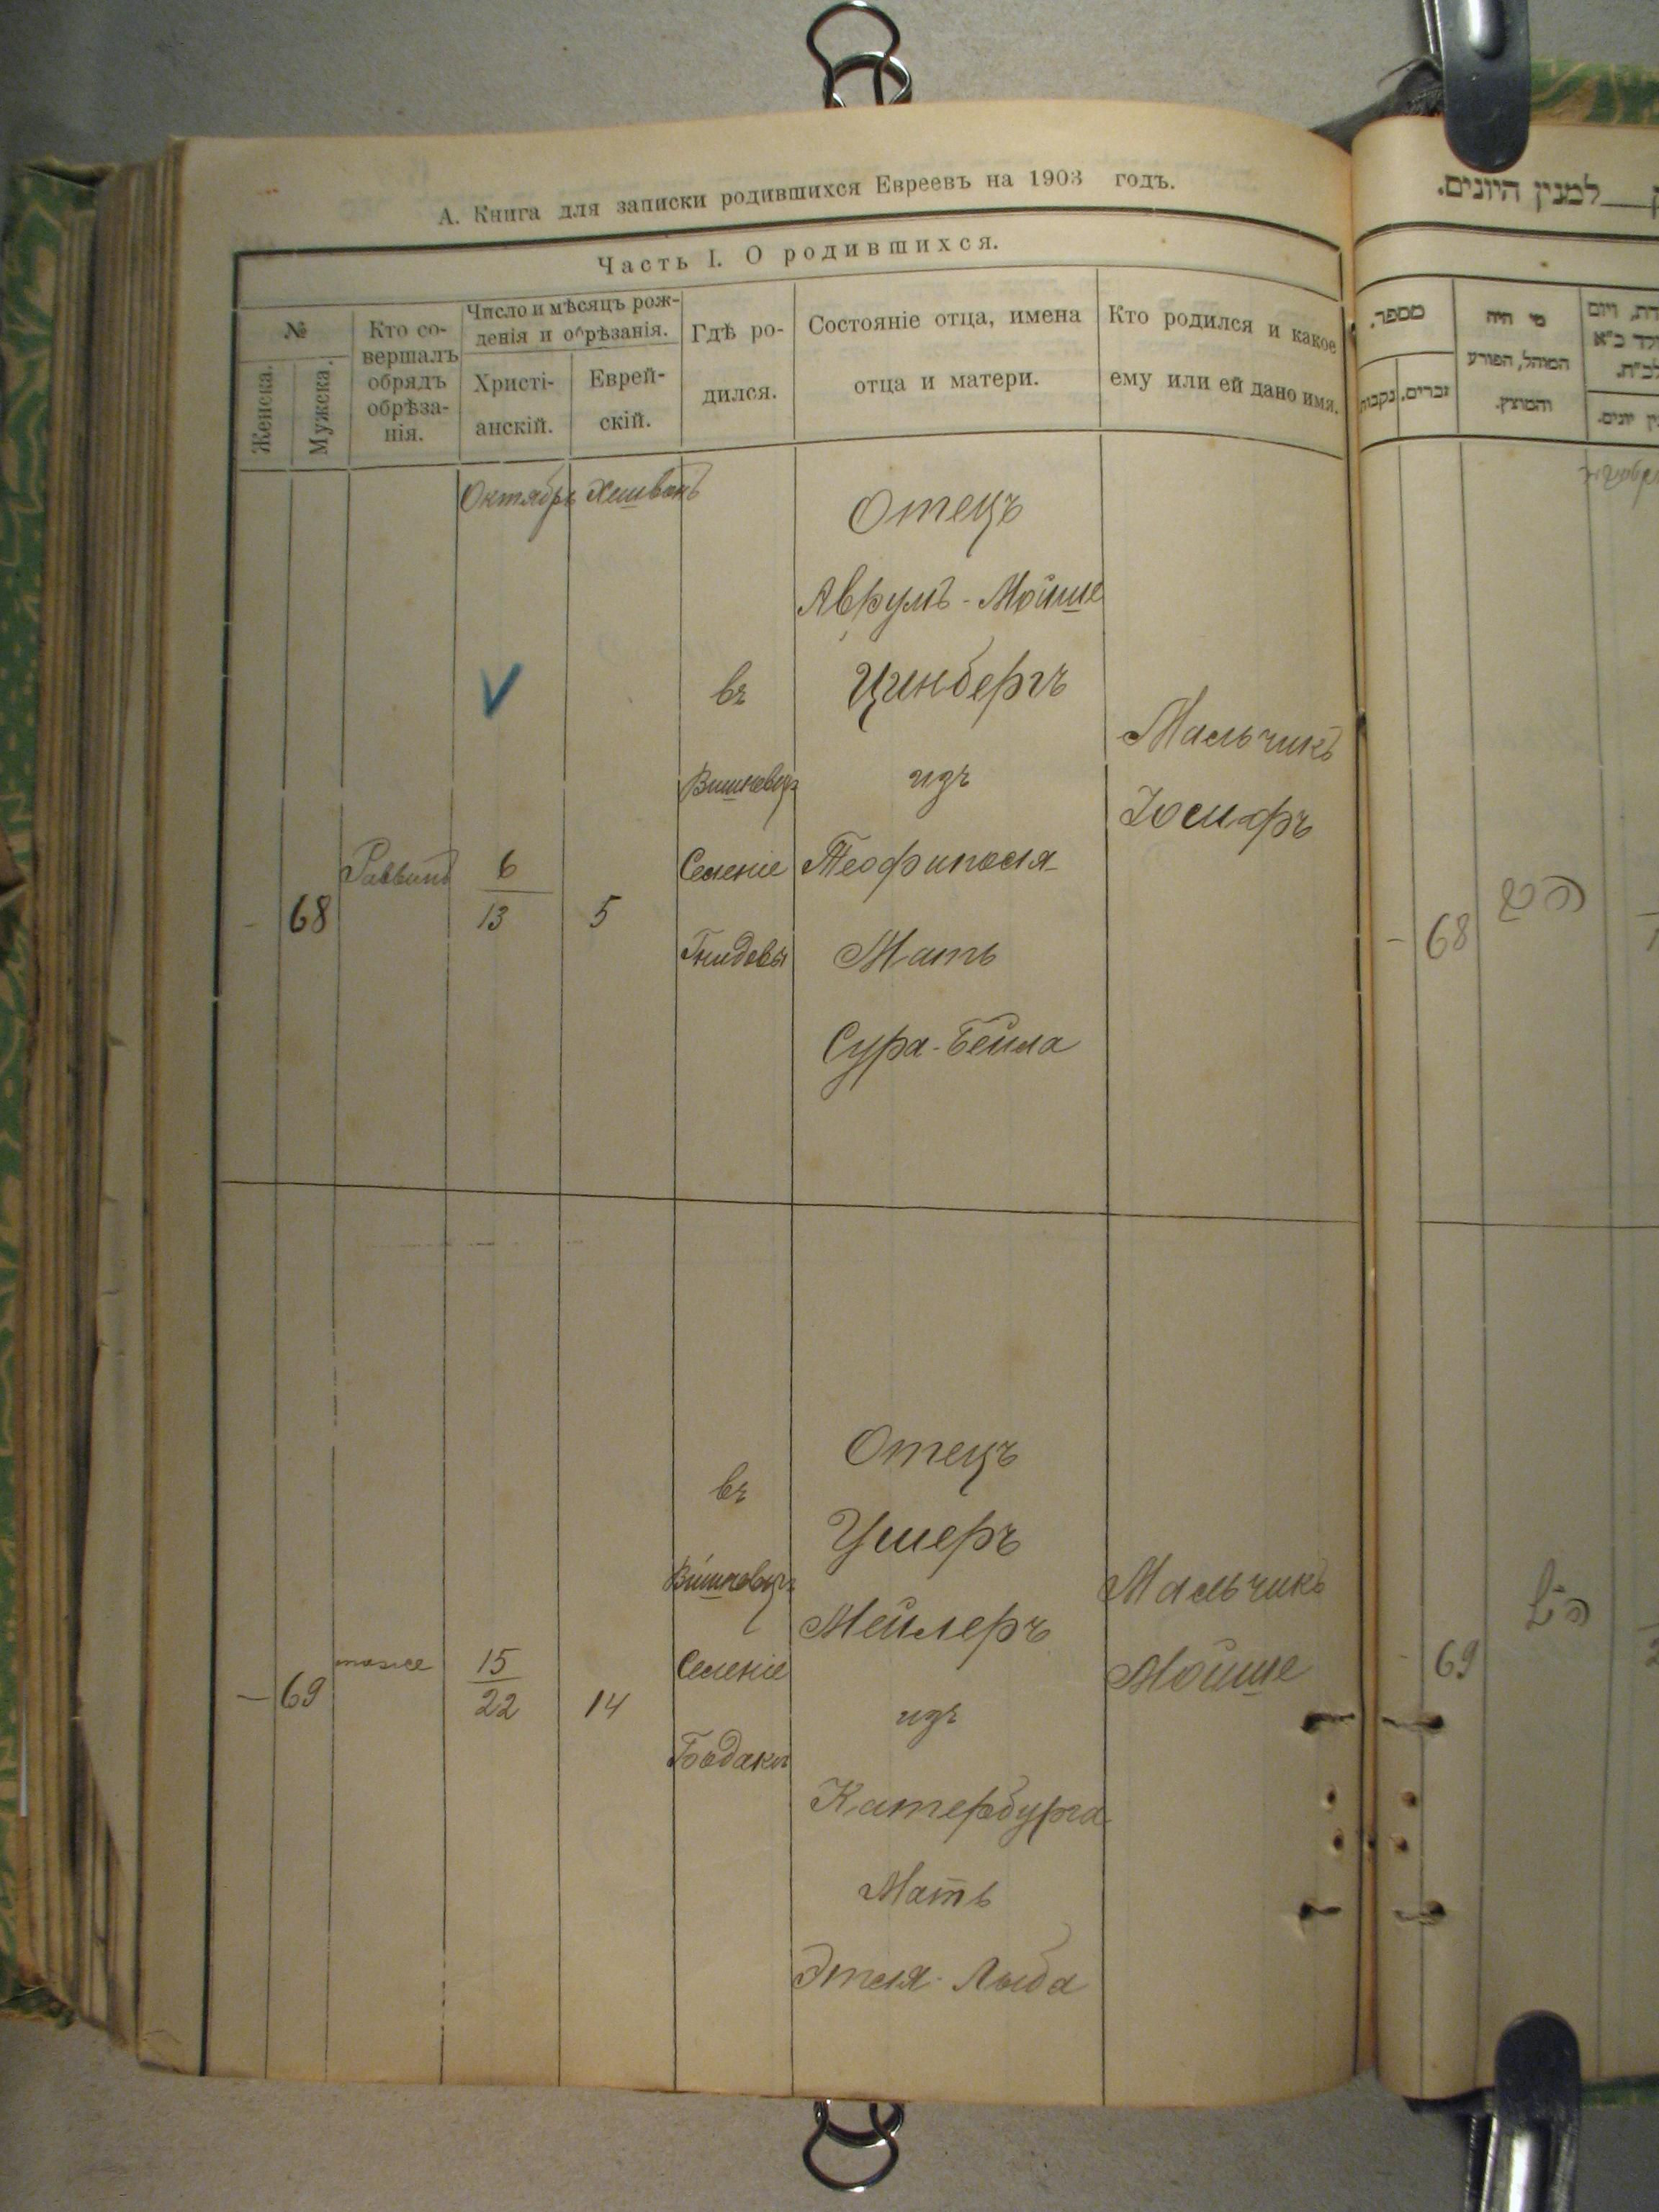 А. Книга для записки родившихся Евреевъ на 1903 годъ.
Часть I. О родившихся.
№
Женска.
Мужска.
Кто со-
вершалъ
обрядъ
обрѣза-
нія.
Число и мѣсяцъ рож-
денія и обрѣзанія.
Христі-
анскій.
Еврей-
скій.
Гдѣ ро-
дился.
Состояніе отца, имена
отца и матери.
Кто родился и какое
ему или ей дано имя.
Октябрь Хешванъ
- 68
Раввинъ
6
13
5
въ
Вишневцѣ
Селеніе
Гнидовы
Отецъ
Аврумъ-Мойше
Цинбергъ
изъ
Теофиполя
Мать
Сура-Бейла
Мальчикъ
Іосифъ
- 69
тоже
15
22
14
въ
Вишневцѣ
Селеніе
Бодаки
Отецъ
Ушеръ
Мейлеръ
изъ
Катербурга
Мать
Этля-Лыба
Мальчикъ
Мойше
למנין היונים.
מספר.
נקבות
זכרים.
מי היה
המוהל, הפורע
והמוצץ.
- 68
- 69